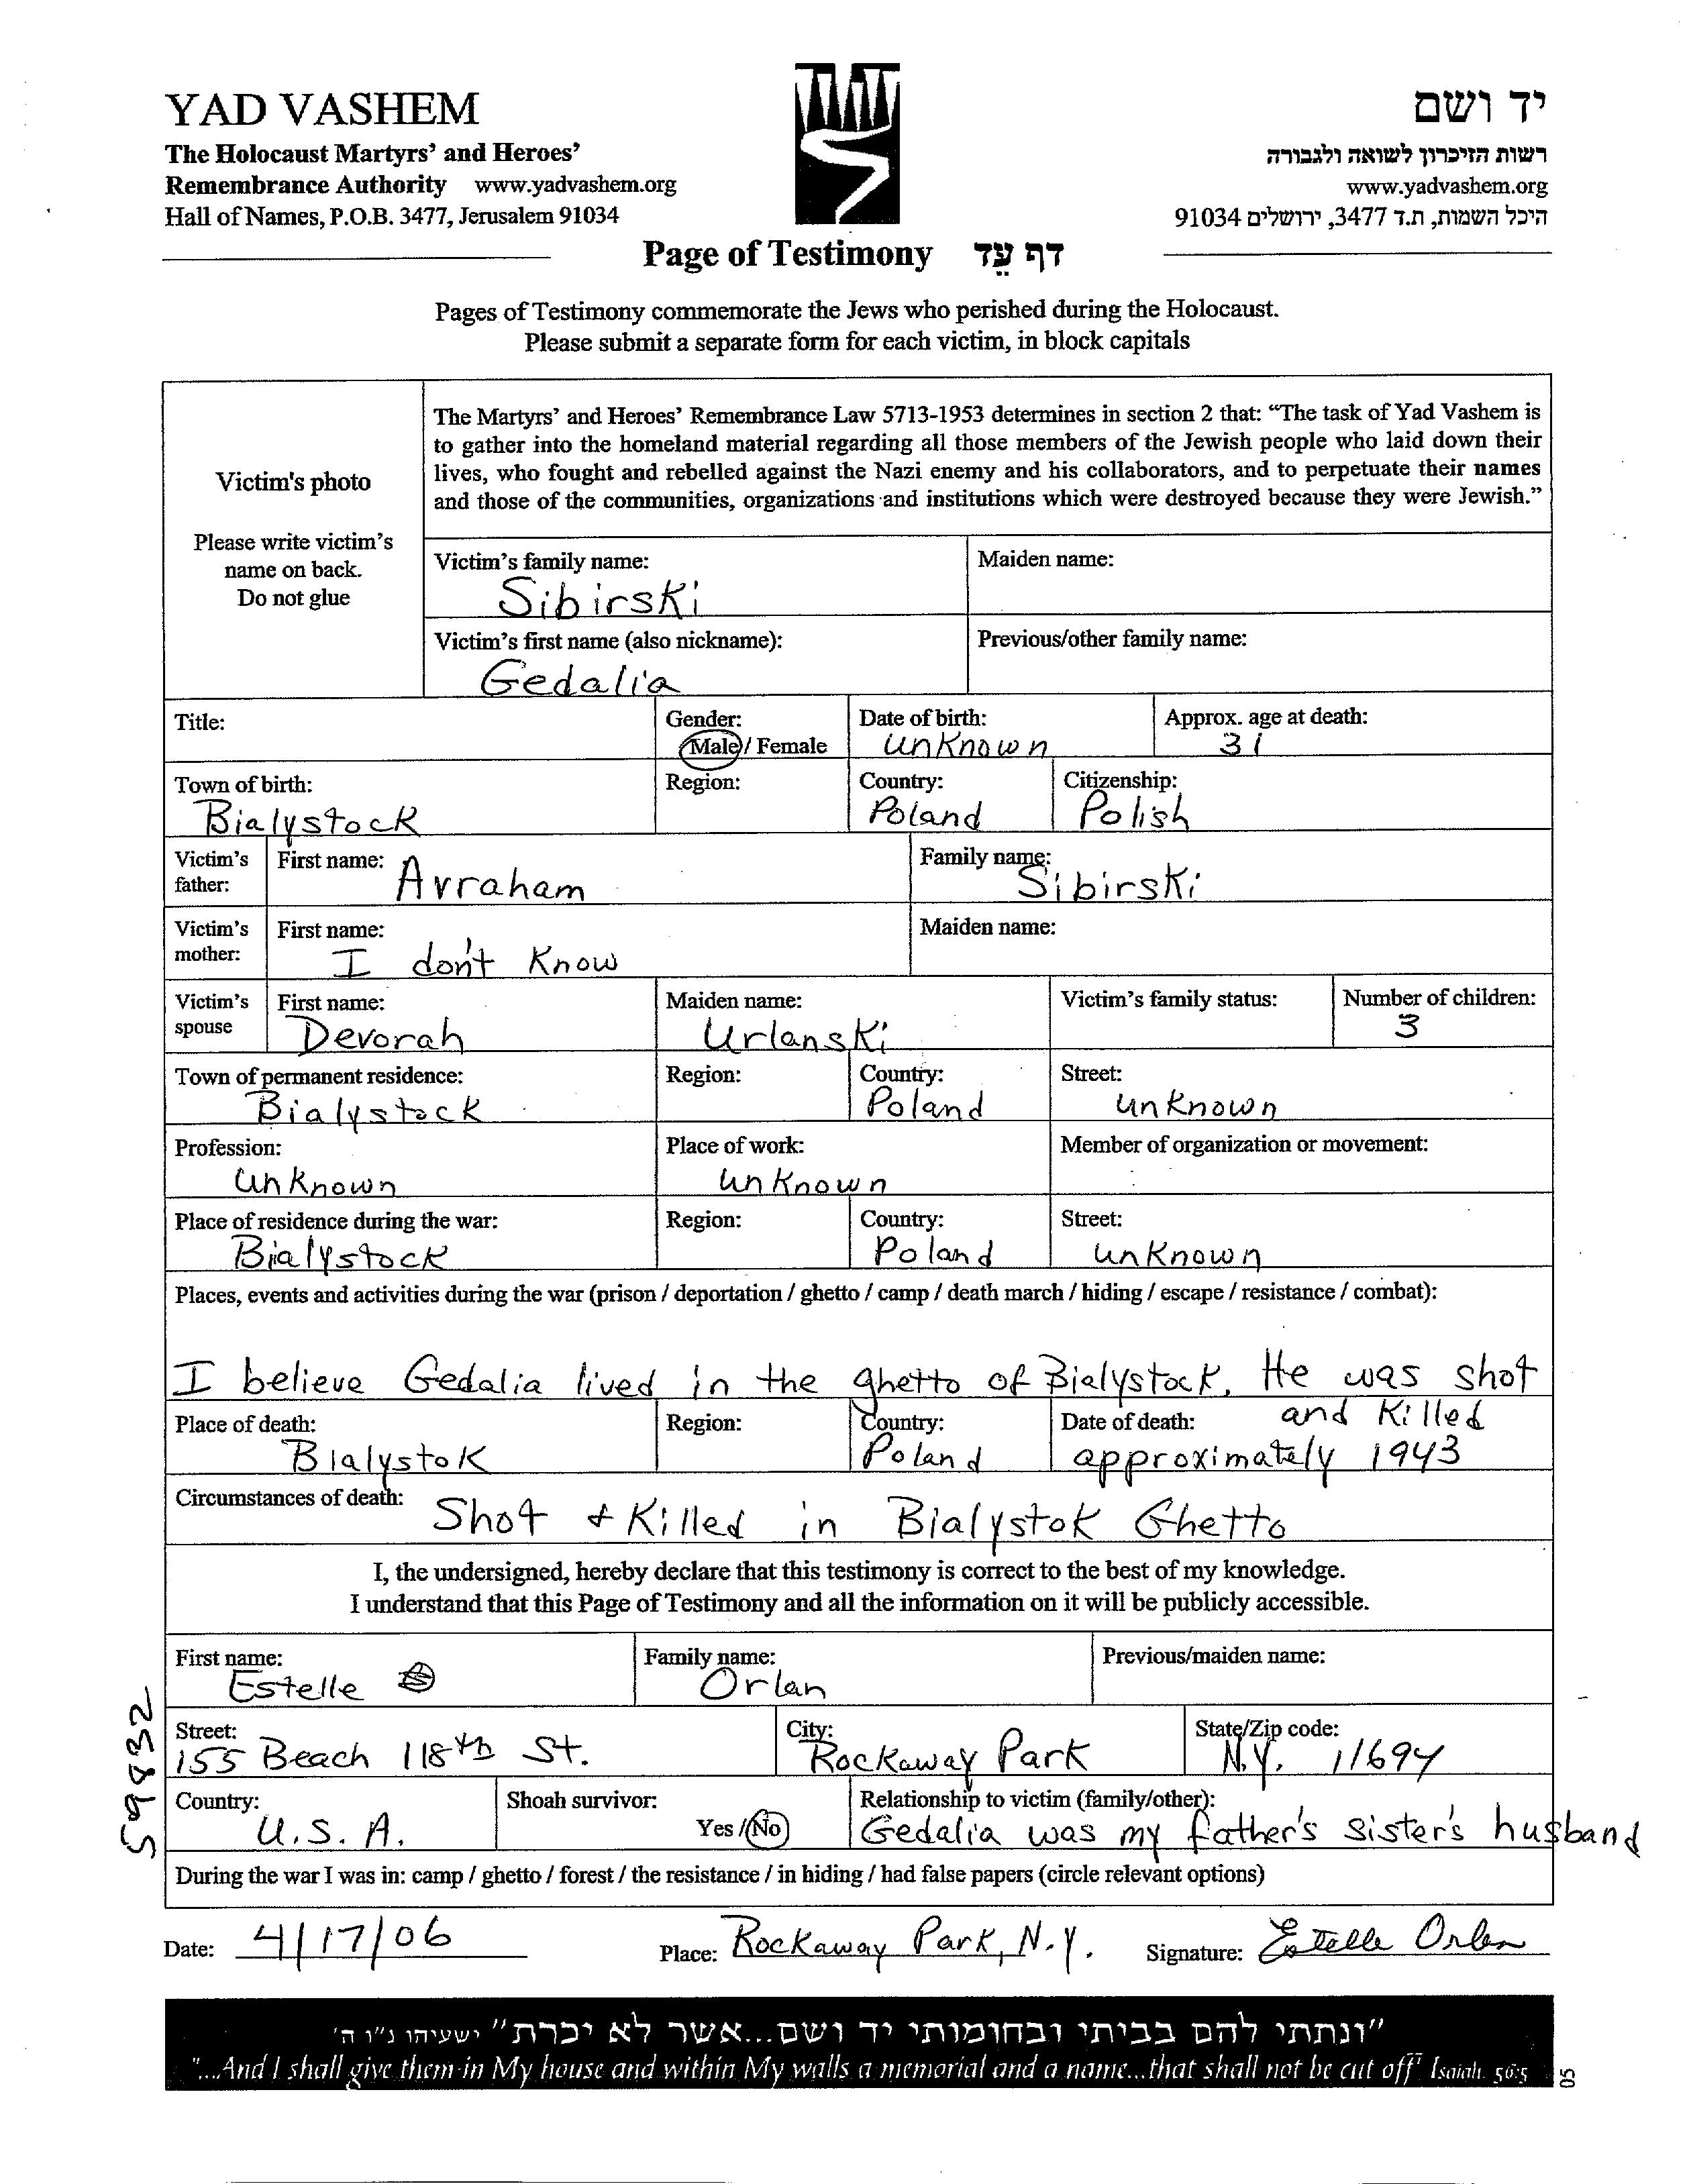 YAD VASHEM
The Holocaust Martyrs' and Heroes'
Remembrance Authority www.yadvashem.org
Hall of Names, P.O.B. 3477, Jerusalem 91034
יד ושם
רשות הזיכרון לשואה ולגבורה
www.yadvashem.org
היכל השמות, ת.ד 3477, ירושלים 91034
Page of Testimony דף עֵד
Pages of Testimony commemorate the Jews who perished during the Holocaust.
Please submit a separate form for each victim, in block capitals
Victim's photo
Please write victim's
name on back.
Do not glue
The Martyrs' and Heroes' Remembrance Law 5713-1953 determines in section 2 that: "The task of Yad Vashem is
to gather into the homeland material regarding all those members of the Jewish people who laid down their
lives, who fought and rebelled against the Nazi enemy and his collaborators, and to perpetuate their names
and those of the communities, organizations and institutions which were destroyed because they were Jewish."
Victim's family name: Maiden name:
Sibirski
Victim's first name (also nickname): Previous/other family name:
Gedalia
Title: Gender: Date of birth: Approx. age at death:
Male / Female unknown 31
Town of birth: Region: Country: Citizenship:
Bialystock Poland Polish
Victim's father: First name: Avraham Family name: Sibirski
Victim's mother: First name: I don't know Maiden name:
Victim's spouse First name: Maiden name: Victim's family status: Number of children:
Devorah Urlanski 3
Town of permanent residence: Region: Country: Street:
Bialystock Poland unknown
Profession: Place of work: Member of organization or movement:
unknown unknown
Place of residence during the war: Region: Country: Street:
Bialystock Poland unknown
Places, events and activities during the war (prison / deportation / ghetto / camp / death march / hiding / escape / resistance / combat):
I believe Gedalia lived in the ghetto of Bialystock. He was shot
and killed
Place of death: Region: Country: Date of death:
Bialystok Poland approximately 1943
Circumstances of death: Shot + killed in Bialystok Ghetto
I, the undersigned, hereby declare that this testimony is correct to the best of my knowledge.
I understand that this Page of Testimony and all the information on it will be publicly accessible.
First name: Family name: Previous/maiden name:
Estelle Orlan
Street: City: State/Zip code:
155 Beach 118th St. Rockaway Park N.Y. 11694
Country: Shoah survivor: Relationship to victim (family/other):
U.S.A. Yes / No Gedalia was my father's sister's husband
During the war I was in: camp / ghetto / forest / the resistance / in hiding / had false papers (circle relevant options)
Date: 4/17/06 Place: Rockaway Park, N.Y. Signature: Estelle Orlan
599832
"ונתתי להם בביתי ובחומותי יד ושם...אשר לא יכרת" ישעיהו נ"ו ה'
"...And I shall give them in My house and within My walls a memorial and a name...that shall not be cut off" Isaiah. 56:5
05